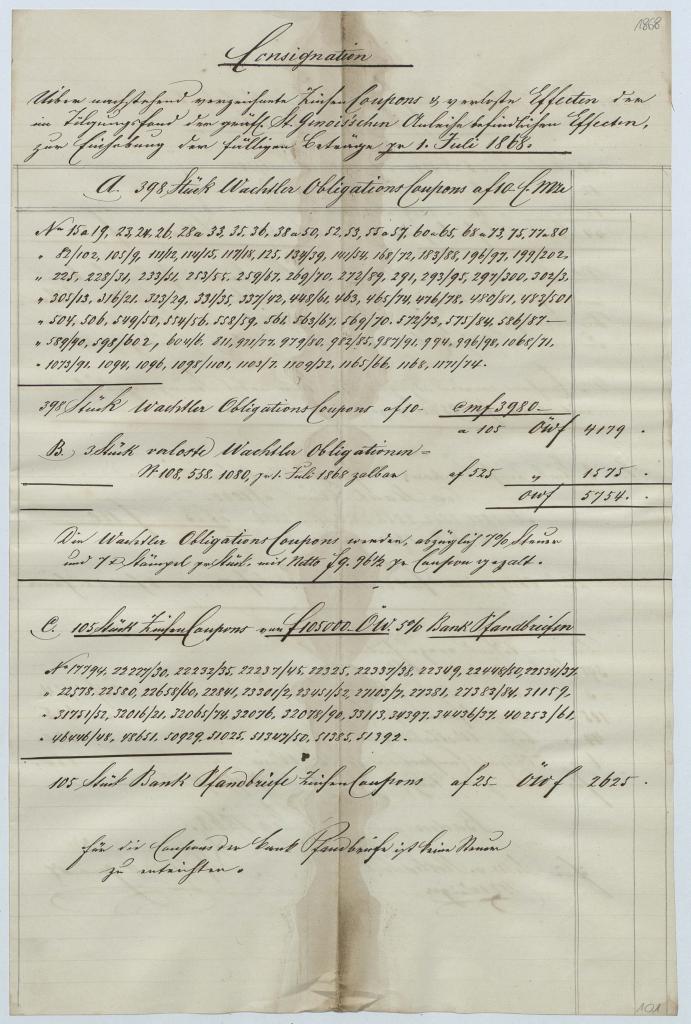 1868
Consignation
Ueber nachstehend verzeichnete Zinsen Coupons & verloste Effecten der
im Tilgungsfond der gräfl. St. Genoisschen Anleihe befindlichen Effecten,
zur Einhebung der fälligen Beträge pr 1. Juli 1868.
A. 398 Stück Wachtler Obligations Coupons a f 10
No 15 a 19, 23, 24, 26, 28 a 33, 35, 36, 38 a 50, 52, 53, 55 a 57, 60 a 65, 68 a 73, 75, 77 a 80
" 82/102, 105/9, 111/12, 114/15, 117/18, 125, 134/39, 141/54, 168/72, 183/88, 196/97, 199/202,
" 225, 228/31, 233/51, 253/55, 259/67, 269/70, 272/89, 291, 293/95, 297/300, 302/3,
" 305/13, 316/21, 323/29, 331/35, 337/42, 448/61, 463, 465/74, 476/78, 480/81, 483/501
" 504, 506, 549/50, 554/56, 558/59, 561, 563/67, 569/70, 572/73, 575/84, 586/87
" 589/90, 598/602, 604/6, 811, 971/77, 979/80, 982/85, 987/91, 994, 996/98, 1068/71,
" 1073/91, 1094, 1096, 1098/1101, 1103/7, 1109/32, 1165/66, 1168, 1171/74.
398 Stück Wachtler Obligations Coupons a f 10 Cmf 3980
a 105 ÖWf 4179 .
B. 3 Stück verloste Wachtler Obligationen =
No 108, 558, 1080, pr 1. Juli 1868 zalbar a f 525 " 1575 .
ÖWf 5754 .
Die Wachtler Obligations Coupons werden, abzüglich 7% Steuer
und 7 x Stämpel pr Stück, mit Netto f 9. 96½ pr Coupon gezalt.
C. 105 Stück Zinsen Coupons von f 105000 ÖW. 5% Bank Pfandbriefen
No 17794, 22227/30, 22232/35, 22237/45, 22325, 22337/38, 22349, 22448/50, 22534/37,
" 22578, 22580, 22658/60, 22841, 23301/2, 23451/52, 27103/7, 27381, 27383/84, 31159
" 31751/52, 32016/21, 32065/74, 32076, 32078/90, 33113, 34397, 34436/37, 40253/61,
" 46446/48, 48651, 50929, 51025, 51347/50, 51385, 51392.
105 Stück Bank Pfandbriefe Zinsen Coupons a f 25 ÖWf 2625 .
für die Coupons der Bank Pfandbriefe ist keine Steuer
zu entrichten.
101